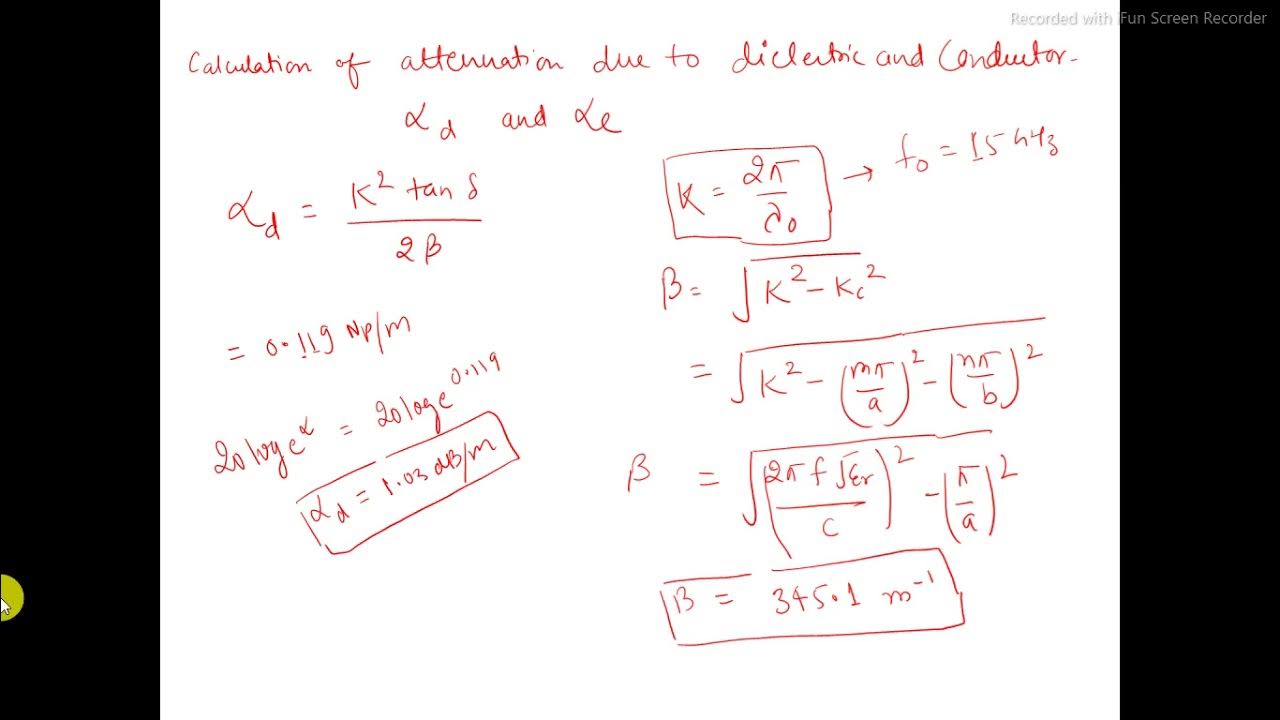 Recorded with iFun Screen Recorder
Calculation of attenuation due to dielectric and Conductor-
αd and αc
αd = K² tan δ / 2β
= 0.119 Np/m
20 log e^α = 20 log e^0.119
αd = 1.03 dB/m
K = 2π / λ0 → f0 = 15 GHz
β = √(K² - Kc²)
= √(K² - (mπ/a)² - (nπ/b)²)
β = √((2π f √εr / c)² - (π/a)²)
β = 345.1 m⁻¹